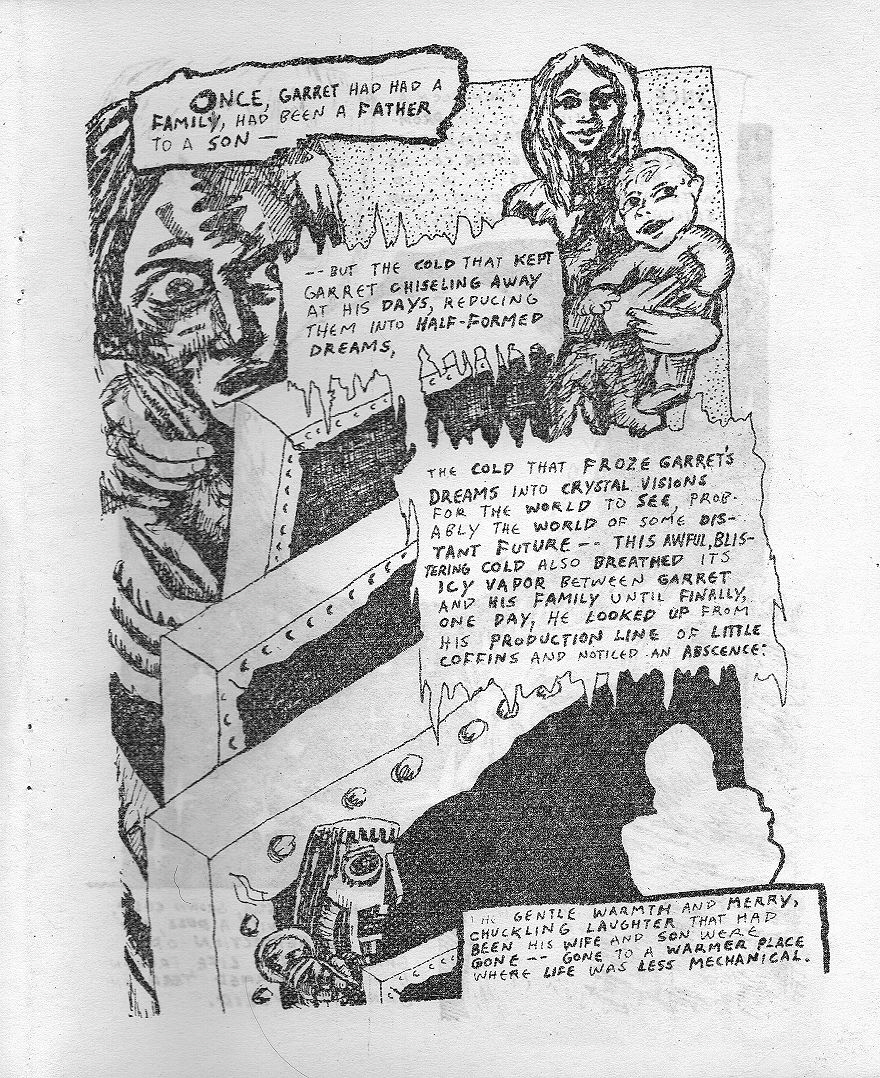 ONCE, GARRET HAD HAD A
FAMILY, HAD BEEN A FATHER
TO A SON —
-- BUT THE COLD THAT KEPT
GARRET CHISELING AWAY
AT HIS DAYS, REDUCING
THEM INTO HALF-FORMED
DREAMS,
THE COLD THAT FROZE GARRET'S
DREAMS INTO CRYSTAL VISIONS
FOR THE WORLD TO SEE, PROB-
ABLY THE WORLD OF SOME DIS-
TANT FUTURE -- THIS AWFUL, BLIS-
TERING COLD ALSO BREATHED ITS
ICY VAPOR BETWEEN GARRET
AND HIS FAMILY UNTIL FINALLY,
ONE DAY, HE LOOKED UP FROM
HIS PRODUCTION LINE OF LITTLE
COFFINS AND NOTICED AN ABSCENCE:
THE GENTLE WARMTH AND MERRY,
CHUCKLING LAUGHTER THAT HAD
BEEN HIS WIFE AND SON WERE
GONE -- GONE TO A WARMER PLACE
WHERE LIFE WAS LESS MECHANICAL.